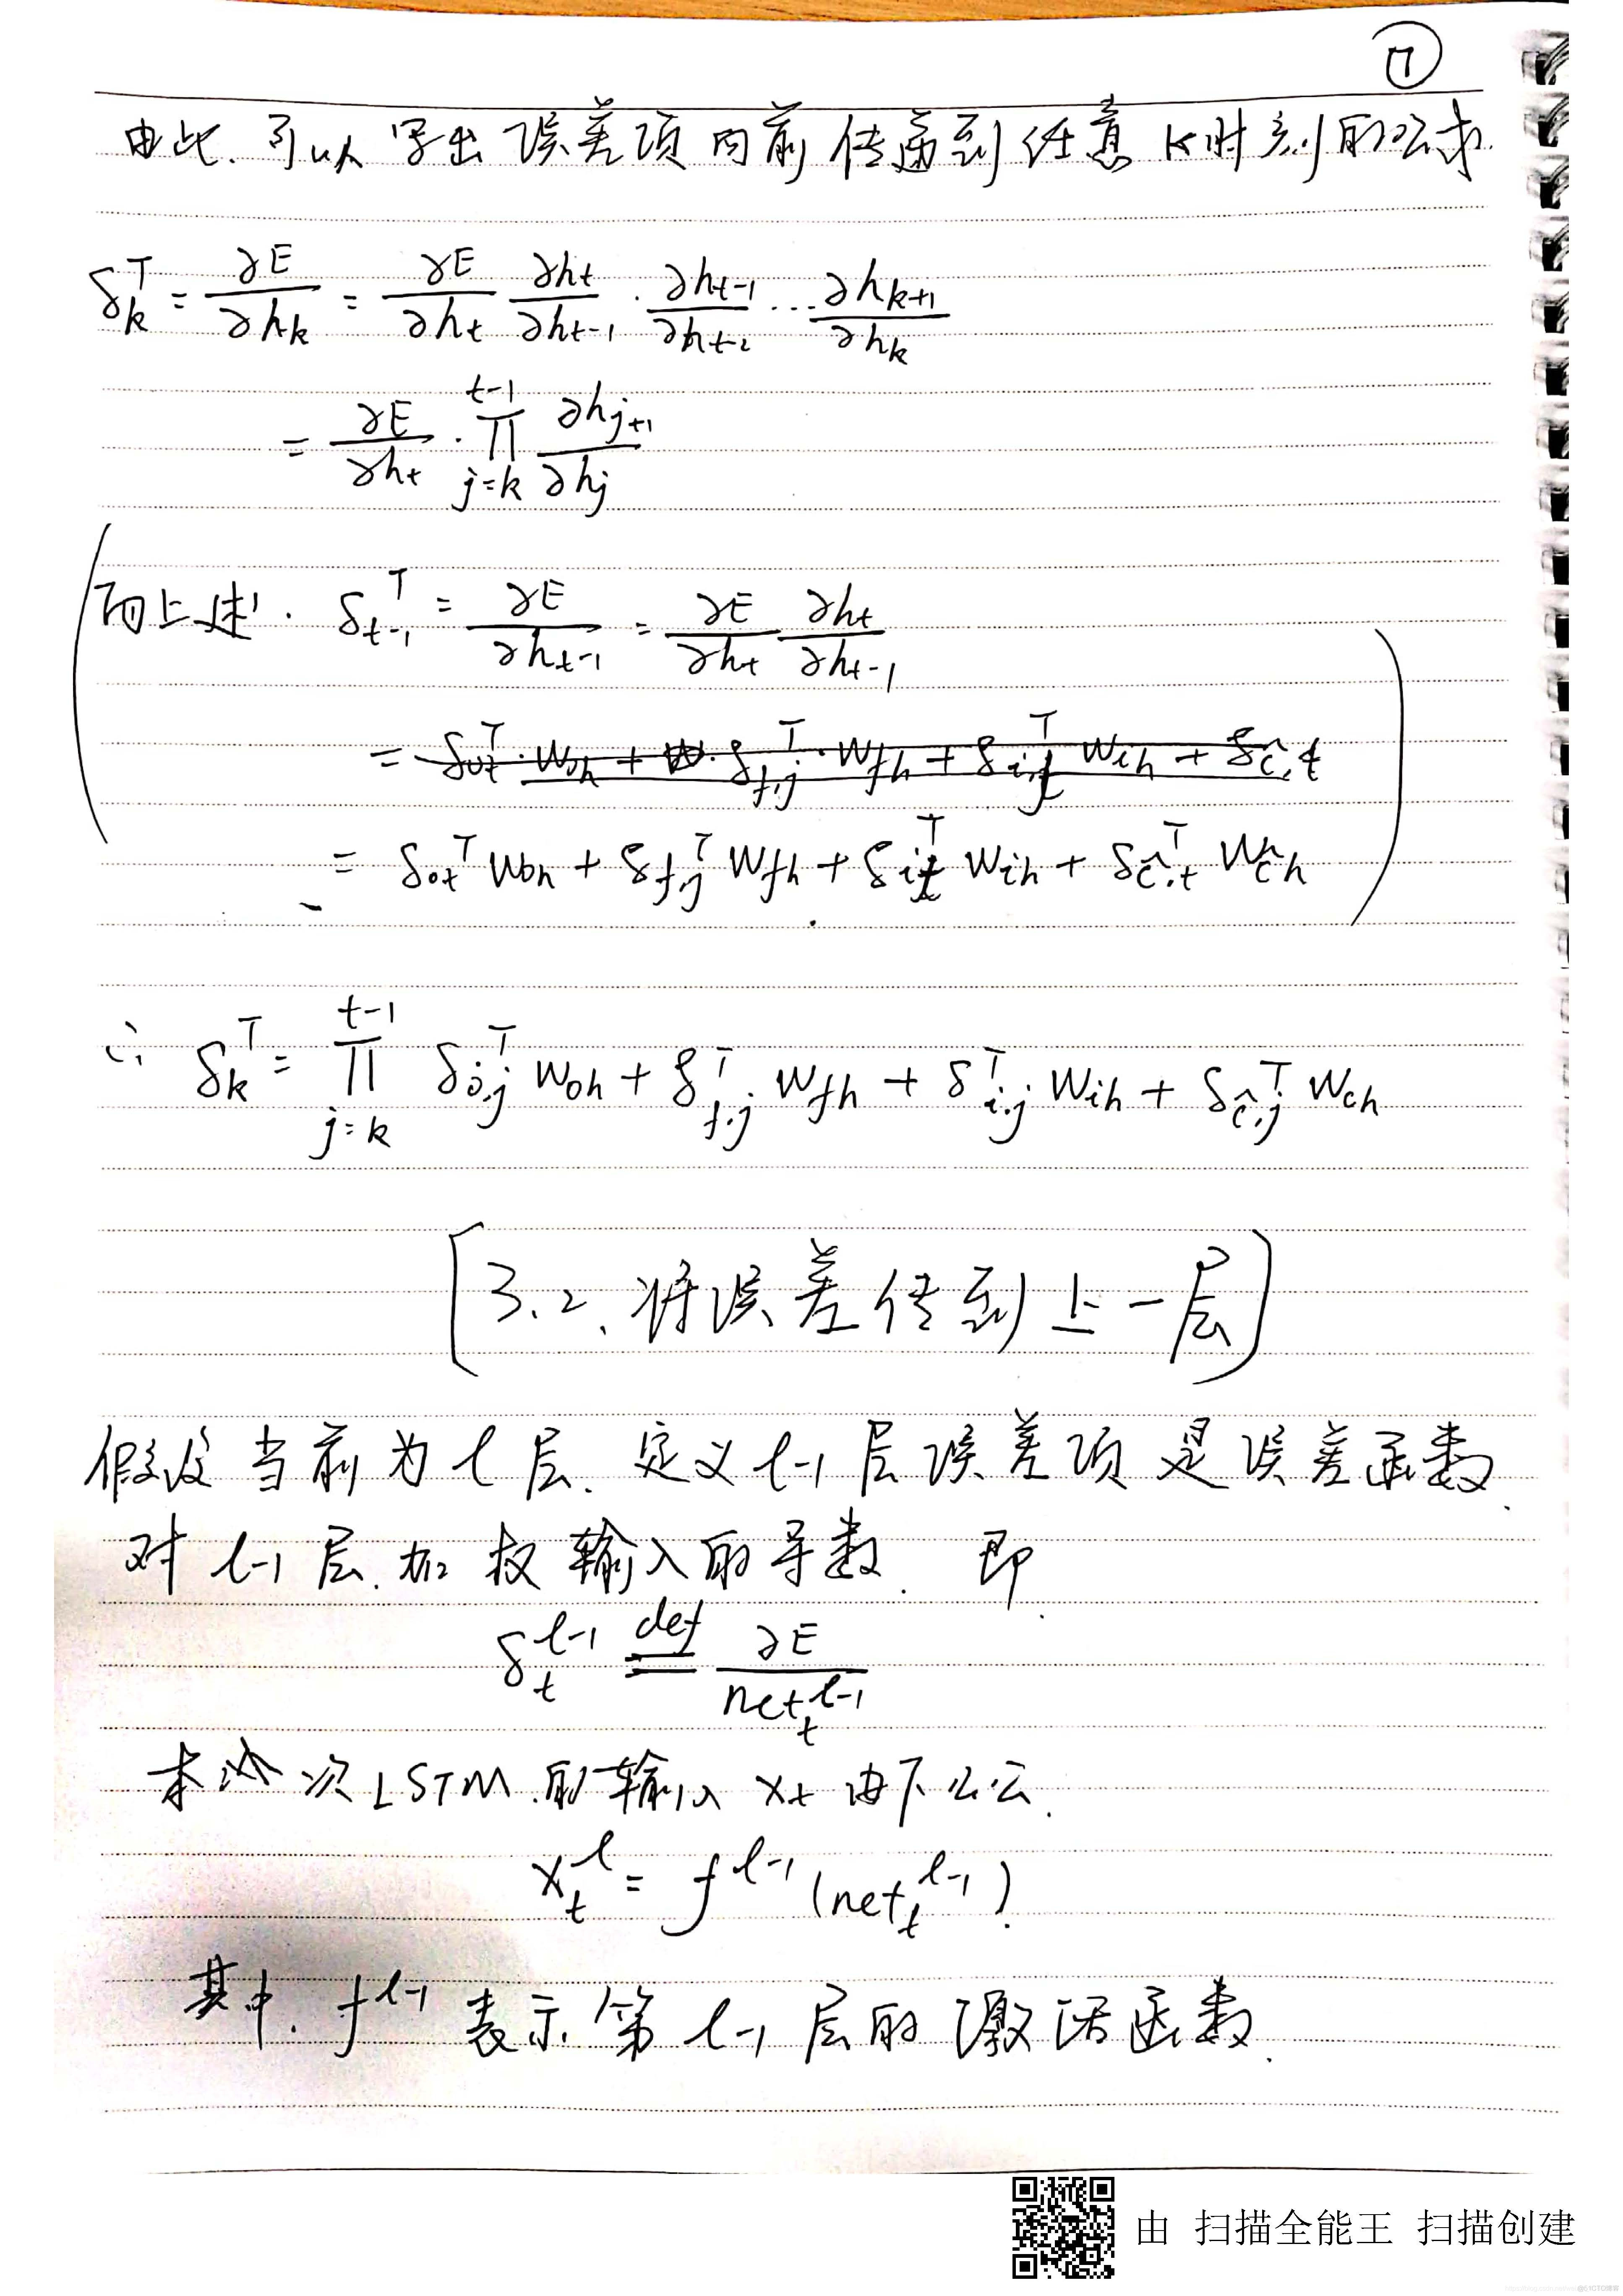 ⑦
由此.可以写出误差项向前传递到任意k时刻的公式.
δ_k^T = ∂E/∂h_k = ∂E/∂h_t ∂h_t/∂h_{t-1} · ∂h_{t-1}/∂h_{t-2} ... ∂h_{k+1}/∂h_k
= ∂E/∂h_t · ∏_{j=k}^{t-1} ∂h_{j+1}/∂h_j
而上述. δ_{t-1}^T = ∂E/∂h_{t-1} = ∂E/∂h_t ∂h_t/∂h_{t-1}
= δ_{ot}^T · W_{oh} + δ_{f,j}^T · W_{fh} + δ_{i,t}^T W_{ih} + δ_{ĉ,t}
= δ_{ot}^T W_{oh} + δ_{f,j}^T W_{fh} + δ_{it}^T W_{ih} + δ_{ĉ,t}^T W_{ĉh}
∴ δ_k^T = ∏_{j=k}^{t-1} δ_{o,j}^T W_{oh} + δ_{f,j}^T W_{fh} + δ_{i,j}^T W_{ih} + δ_{ĉ,j}^T W_{ch}
[3.2、将误差传到上一层]
假设当前为l层.定义l-1层误差项是误差函数
对l-1层.加权输入的导数. 即.
δ_t^{l-1} def= ∂E/net_t^{l-1}
本次LSTM的输入x_t由下公公.
x_t^l = f^{l-1}(net_t^{l-1}).
其中.f^{l-1}表示第l-1层的激活函数.
由 扫描全能王 扫描创建
@51CTO博客